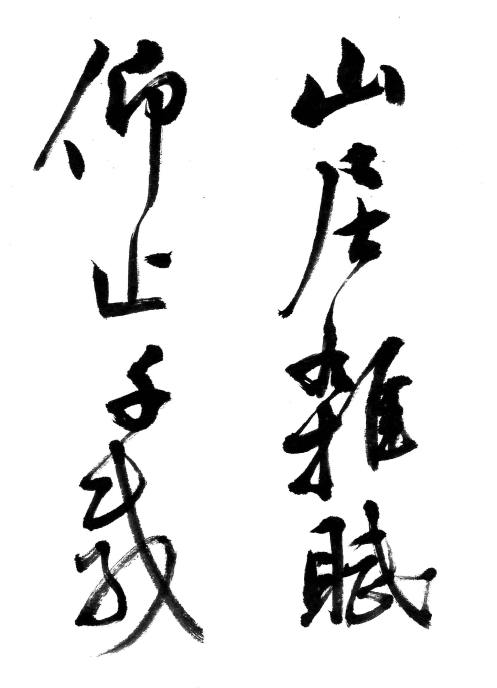 山居雜賦
仰止千載